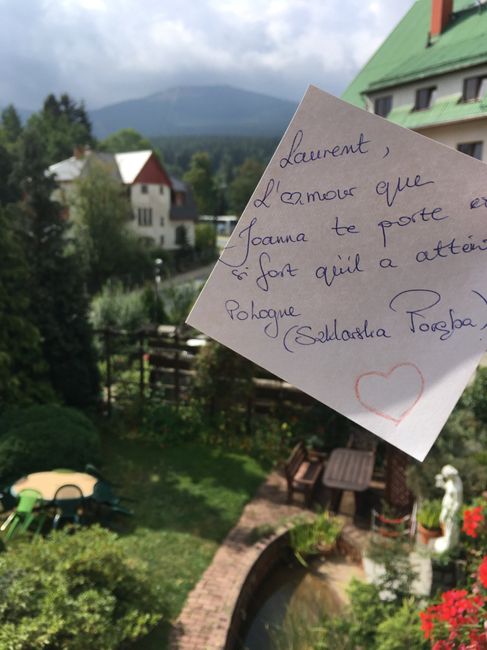 Laurent,
L'amour que
Joanna te porte
si fort qu'il a
Pologne
(Szklarska Poręba)